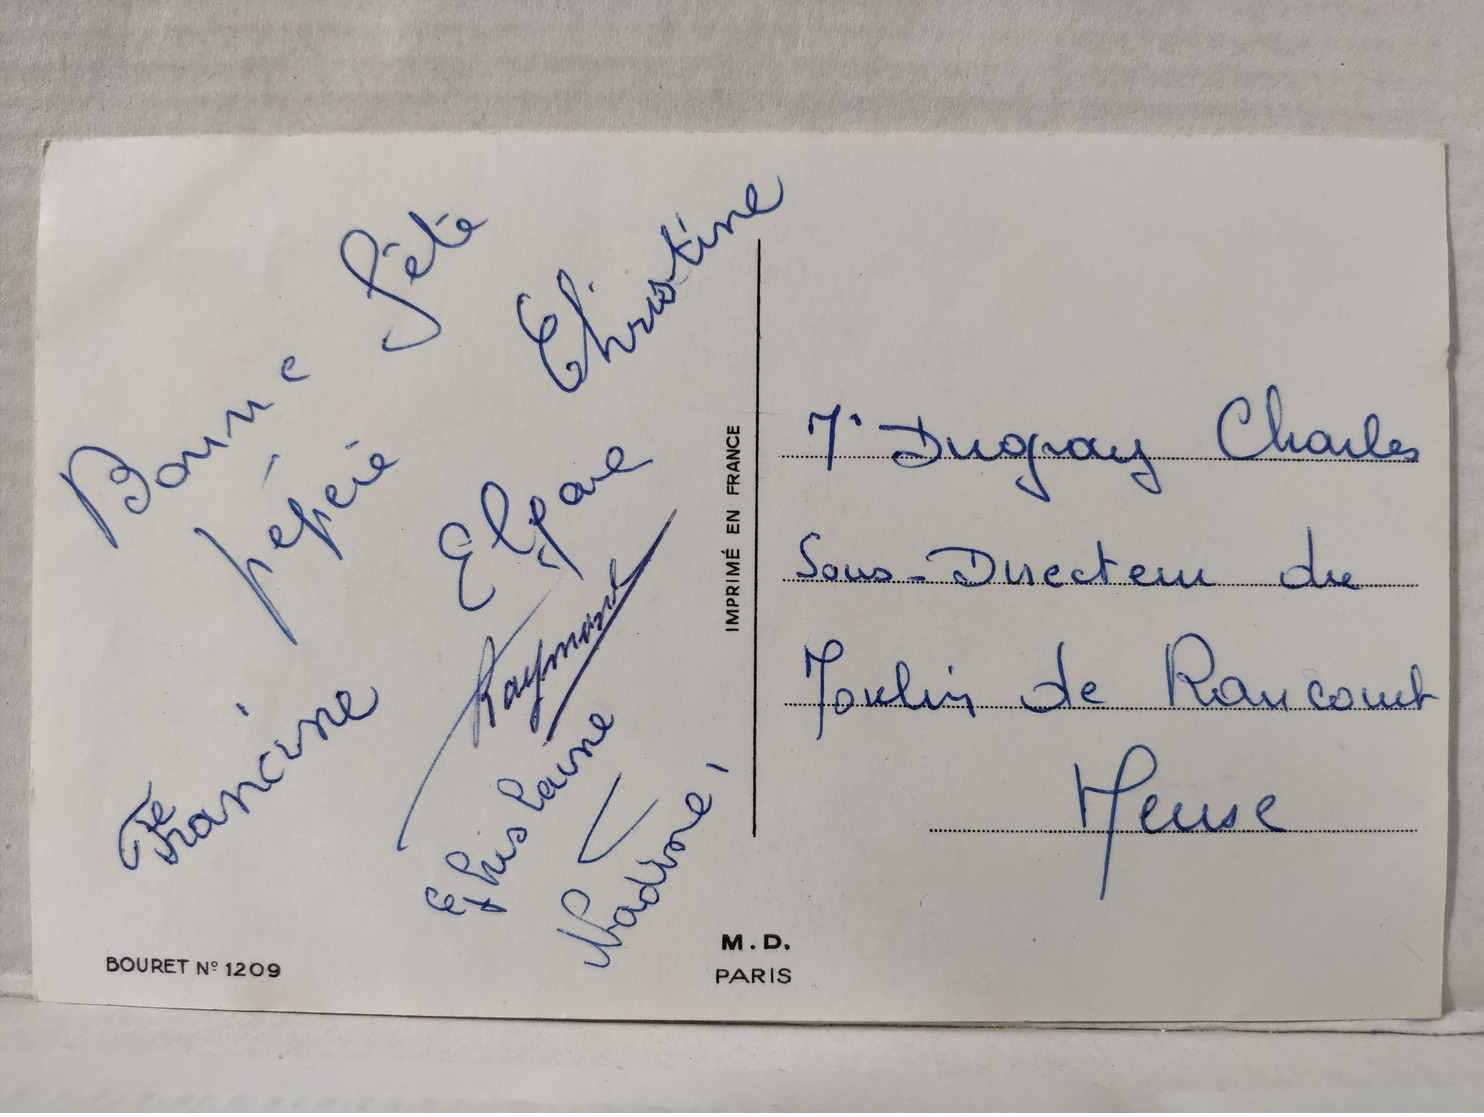 Bonne fête
pépère
Christine
Elgane
Raymond
Francine
Ghislaine
Nadine
IMPRIMÉ EN FRANCE
Mr Dugray Charles
Sous-Directeur du
Moulin de Rancourt
Meuse
BOURET Nº 1209
M.D.
PARIS